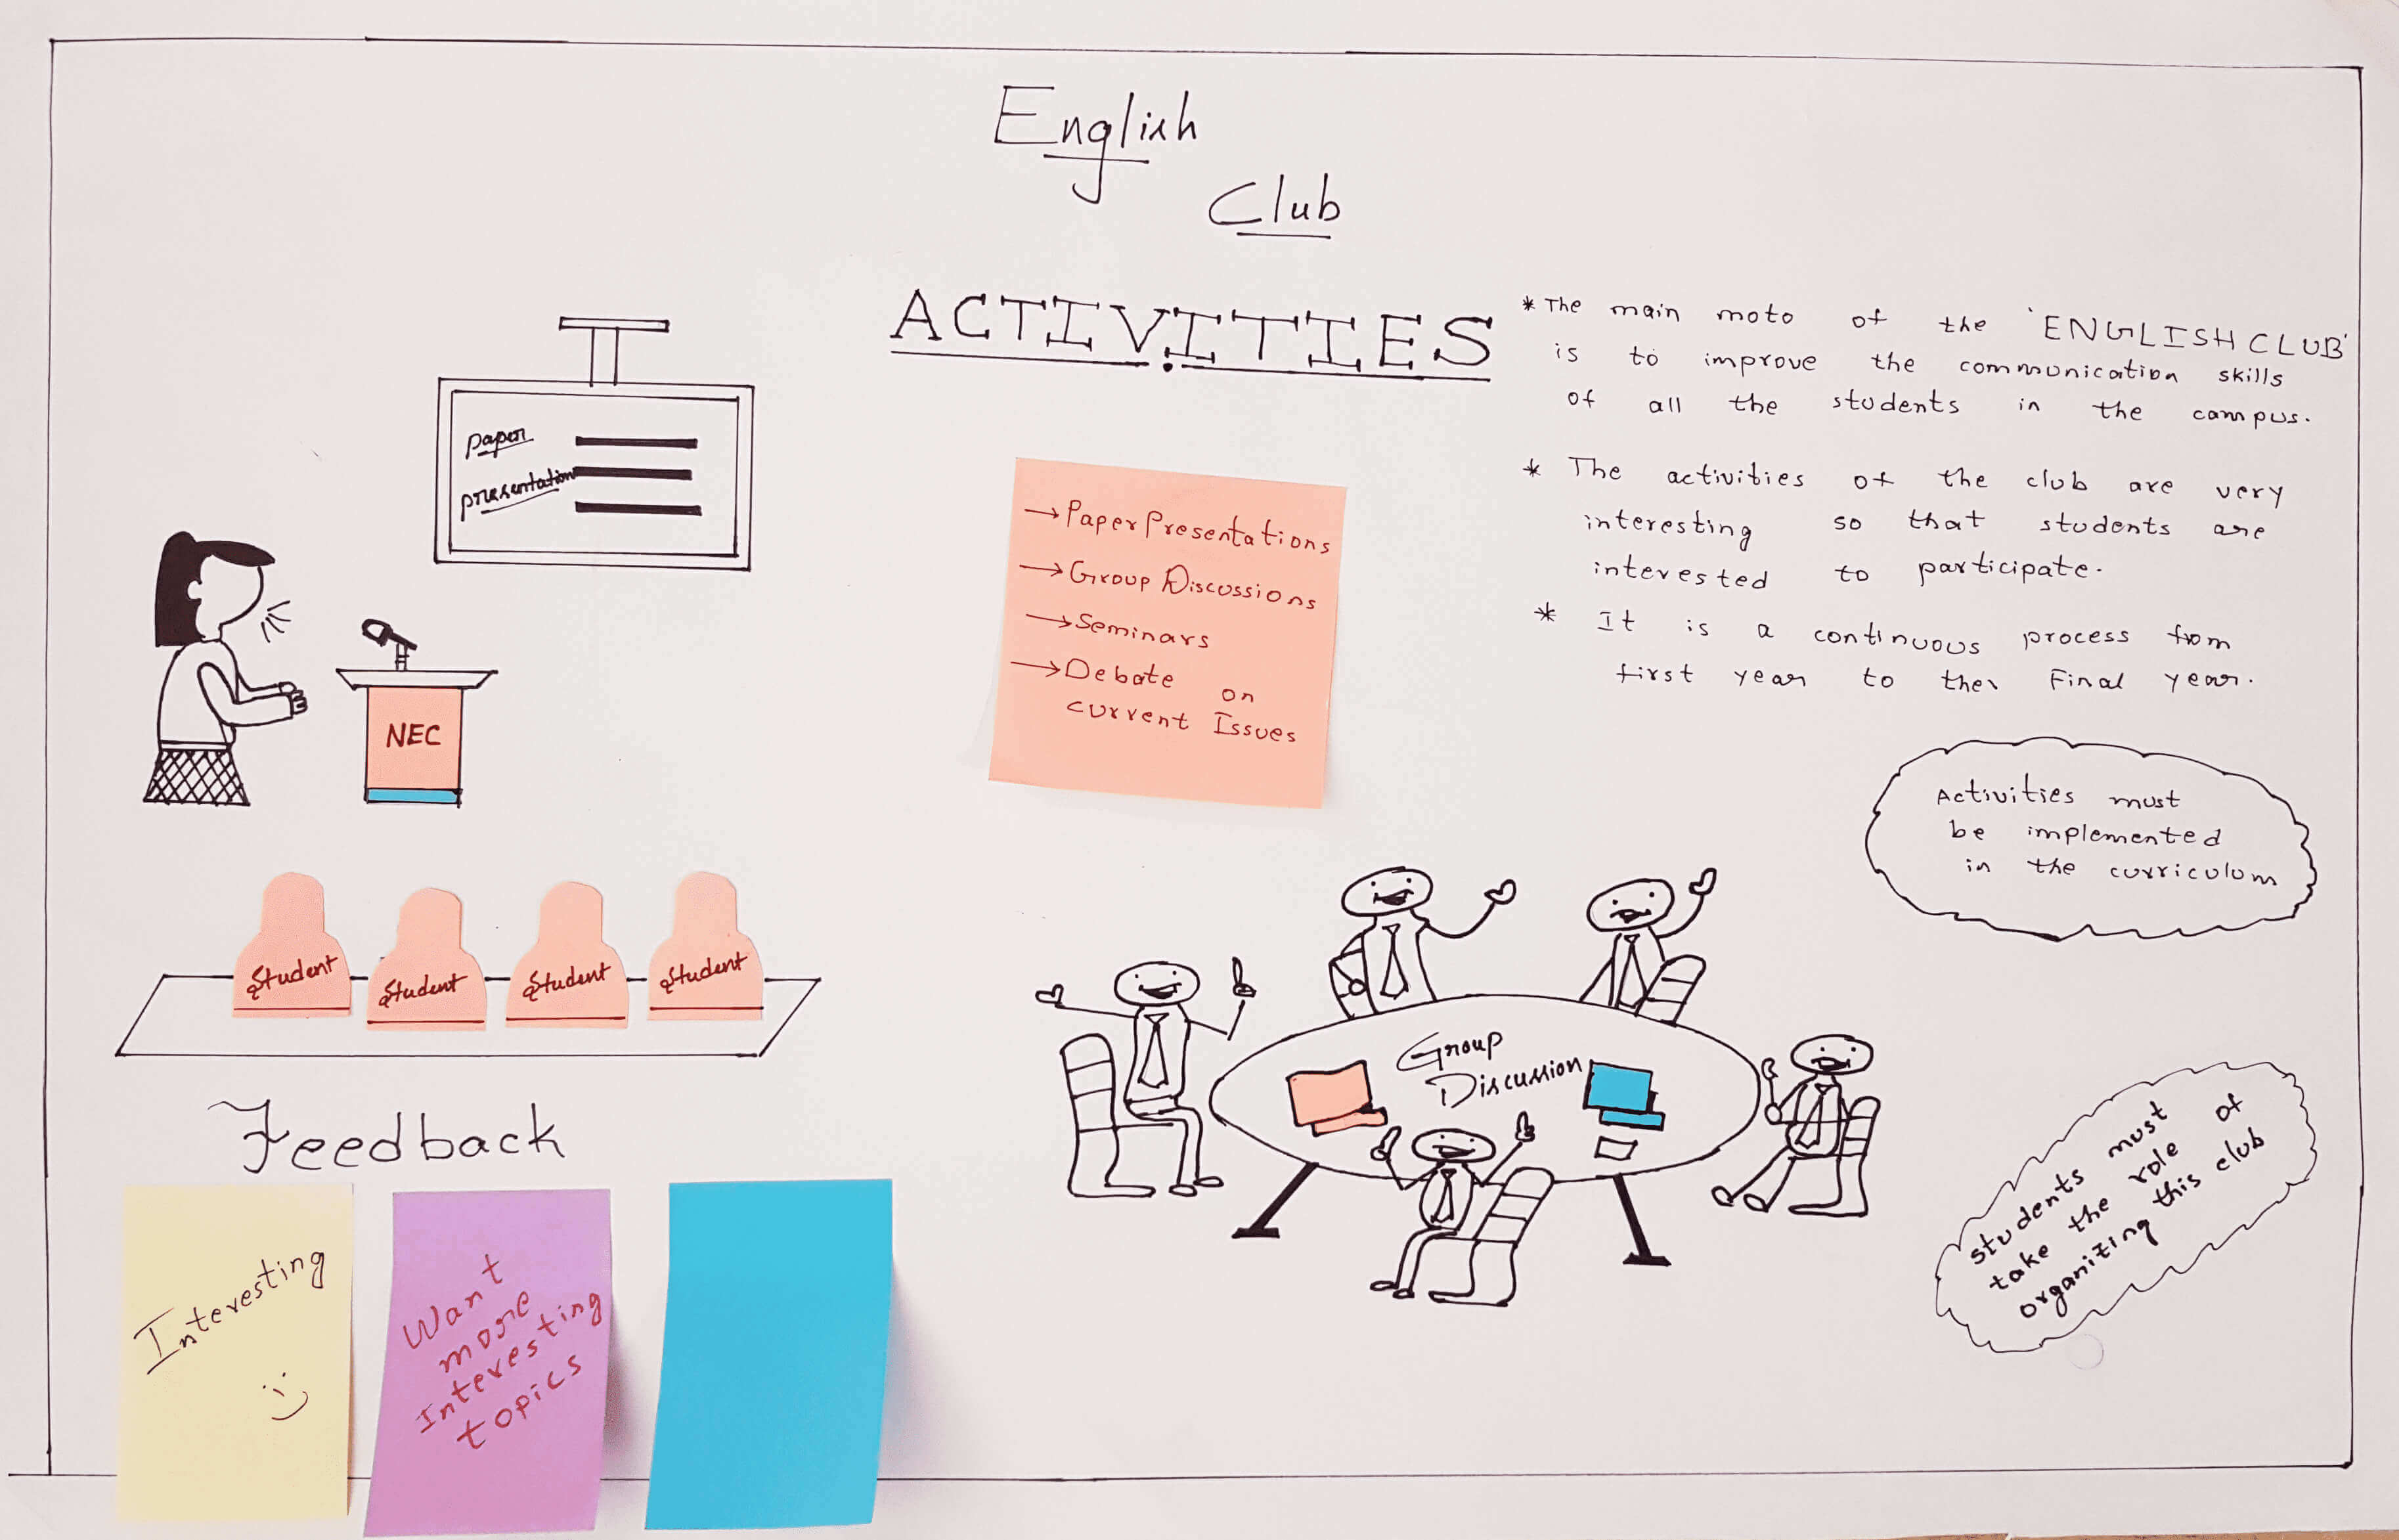 English
Club
ACTIVITIES
* The main moto of the 'ENGLISH CLUB'
is to improve the communication skills
of all the students in the campus.
* The activities of the club are very
interesting so that students are
interested to participate.
* It is a continuous process from
first year to the Final year.
paper
presentation
NEC
→ Paper Presentations
→ Group Discussions
→ Seminars
→ Debate on
current Issues
Activities must
be implemented
in the curriculum
Student
Student
Student
Student
Group
Discussion
students must
take the role of
organizing this club
Feedback
Interesting
:)
Want
more
Interesting
topics